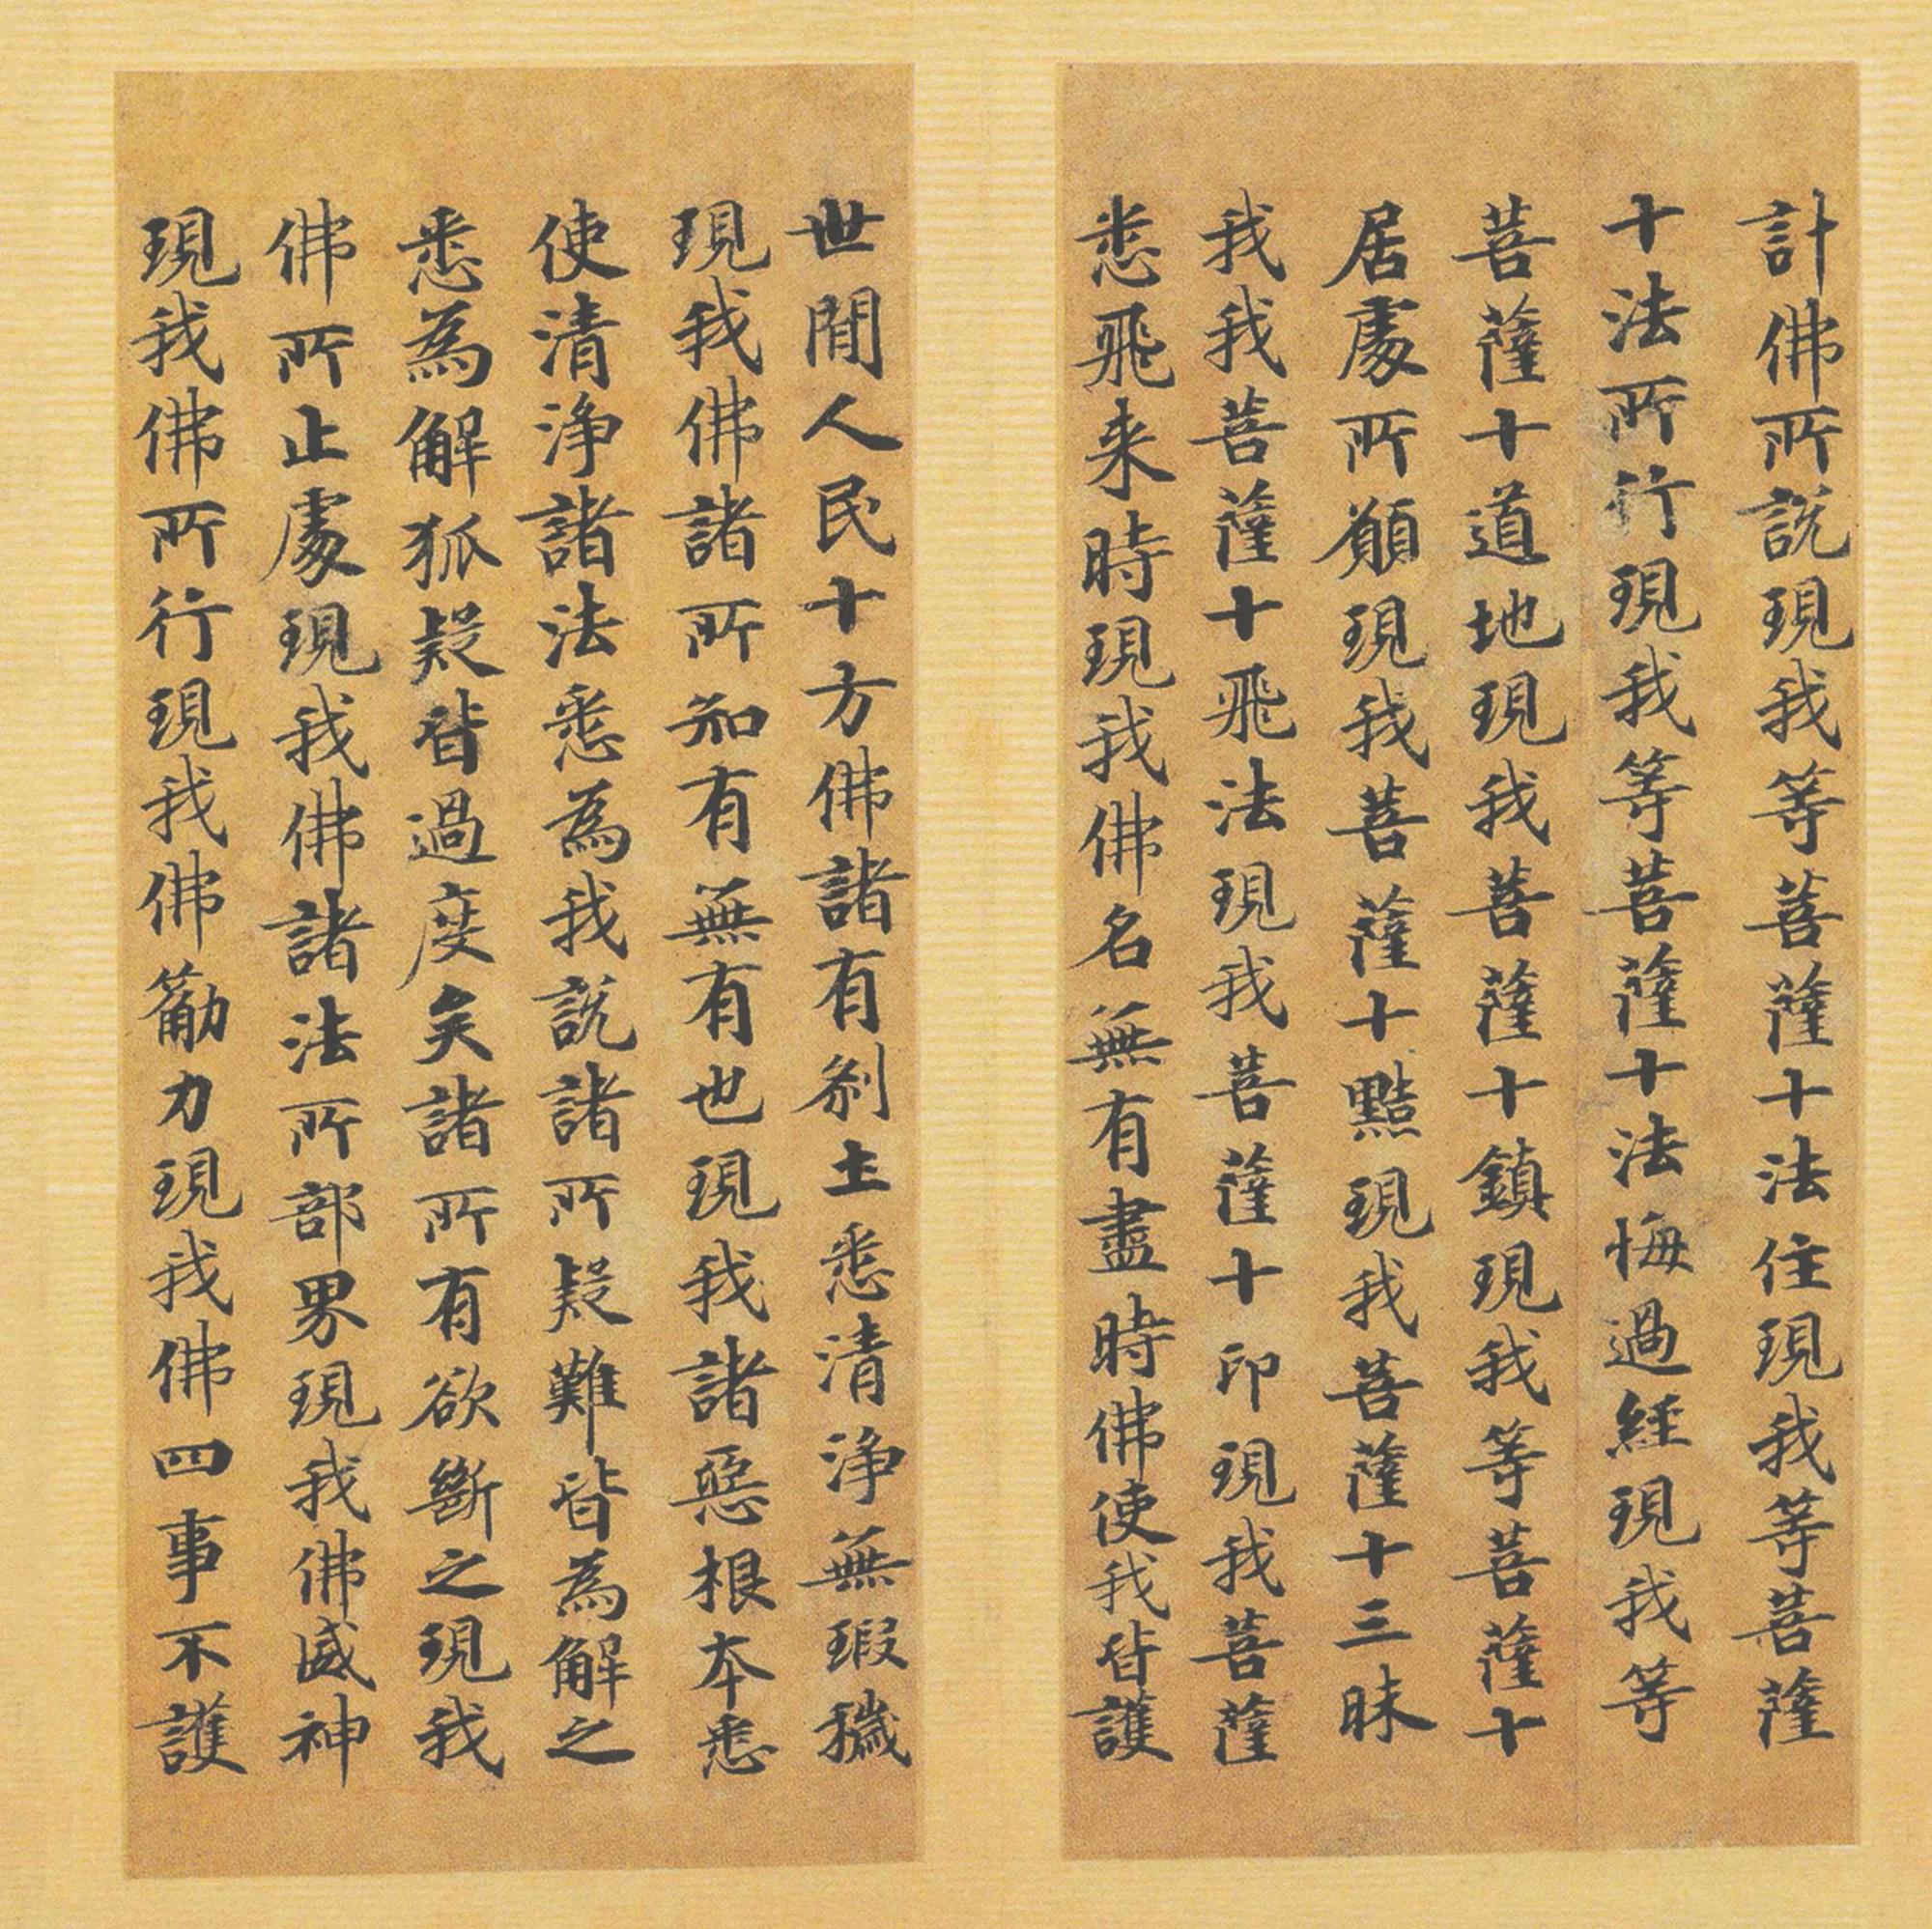 計佛所説現我等菩薩十法住現我等菩薩
十法所行現我等菩薩十法悔過經現我等
菩薩十道地現我菩薩十鎮現我等菩薩十
居處所願現我菩薩十黠現我菩薩十三昧
我我菩薩十飛法現我菩薩十印現我菩薩
悉飛来時現我佛名無有盡時佛使我皆護
世間人民十方佛諸有刹土悉清淨無瑕穢
現我佛諸所知有無有也現我諸惡根本悉
使清淨諸法悉為我説諸所疑難皆為解之
悉為解狐疑皆過度矣諸所有欲斷之現我
佛所止處現我佛諸法所部界現我佛威神
現我佛所行現我佛籌力現我佛四事不護